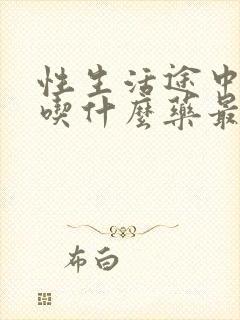 性生活途中
喫什麼藥最
布白